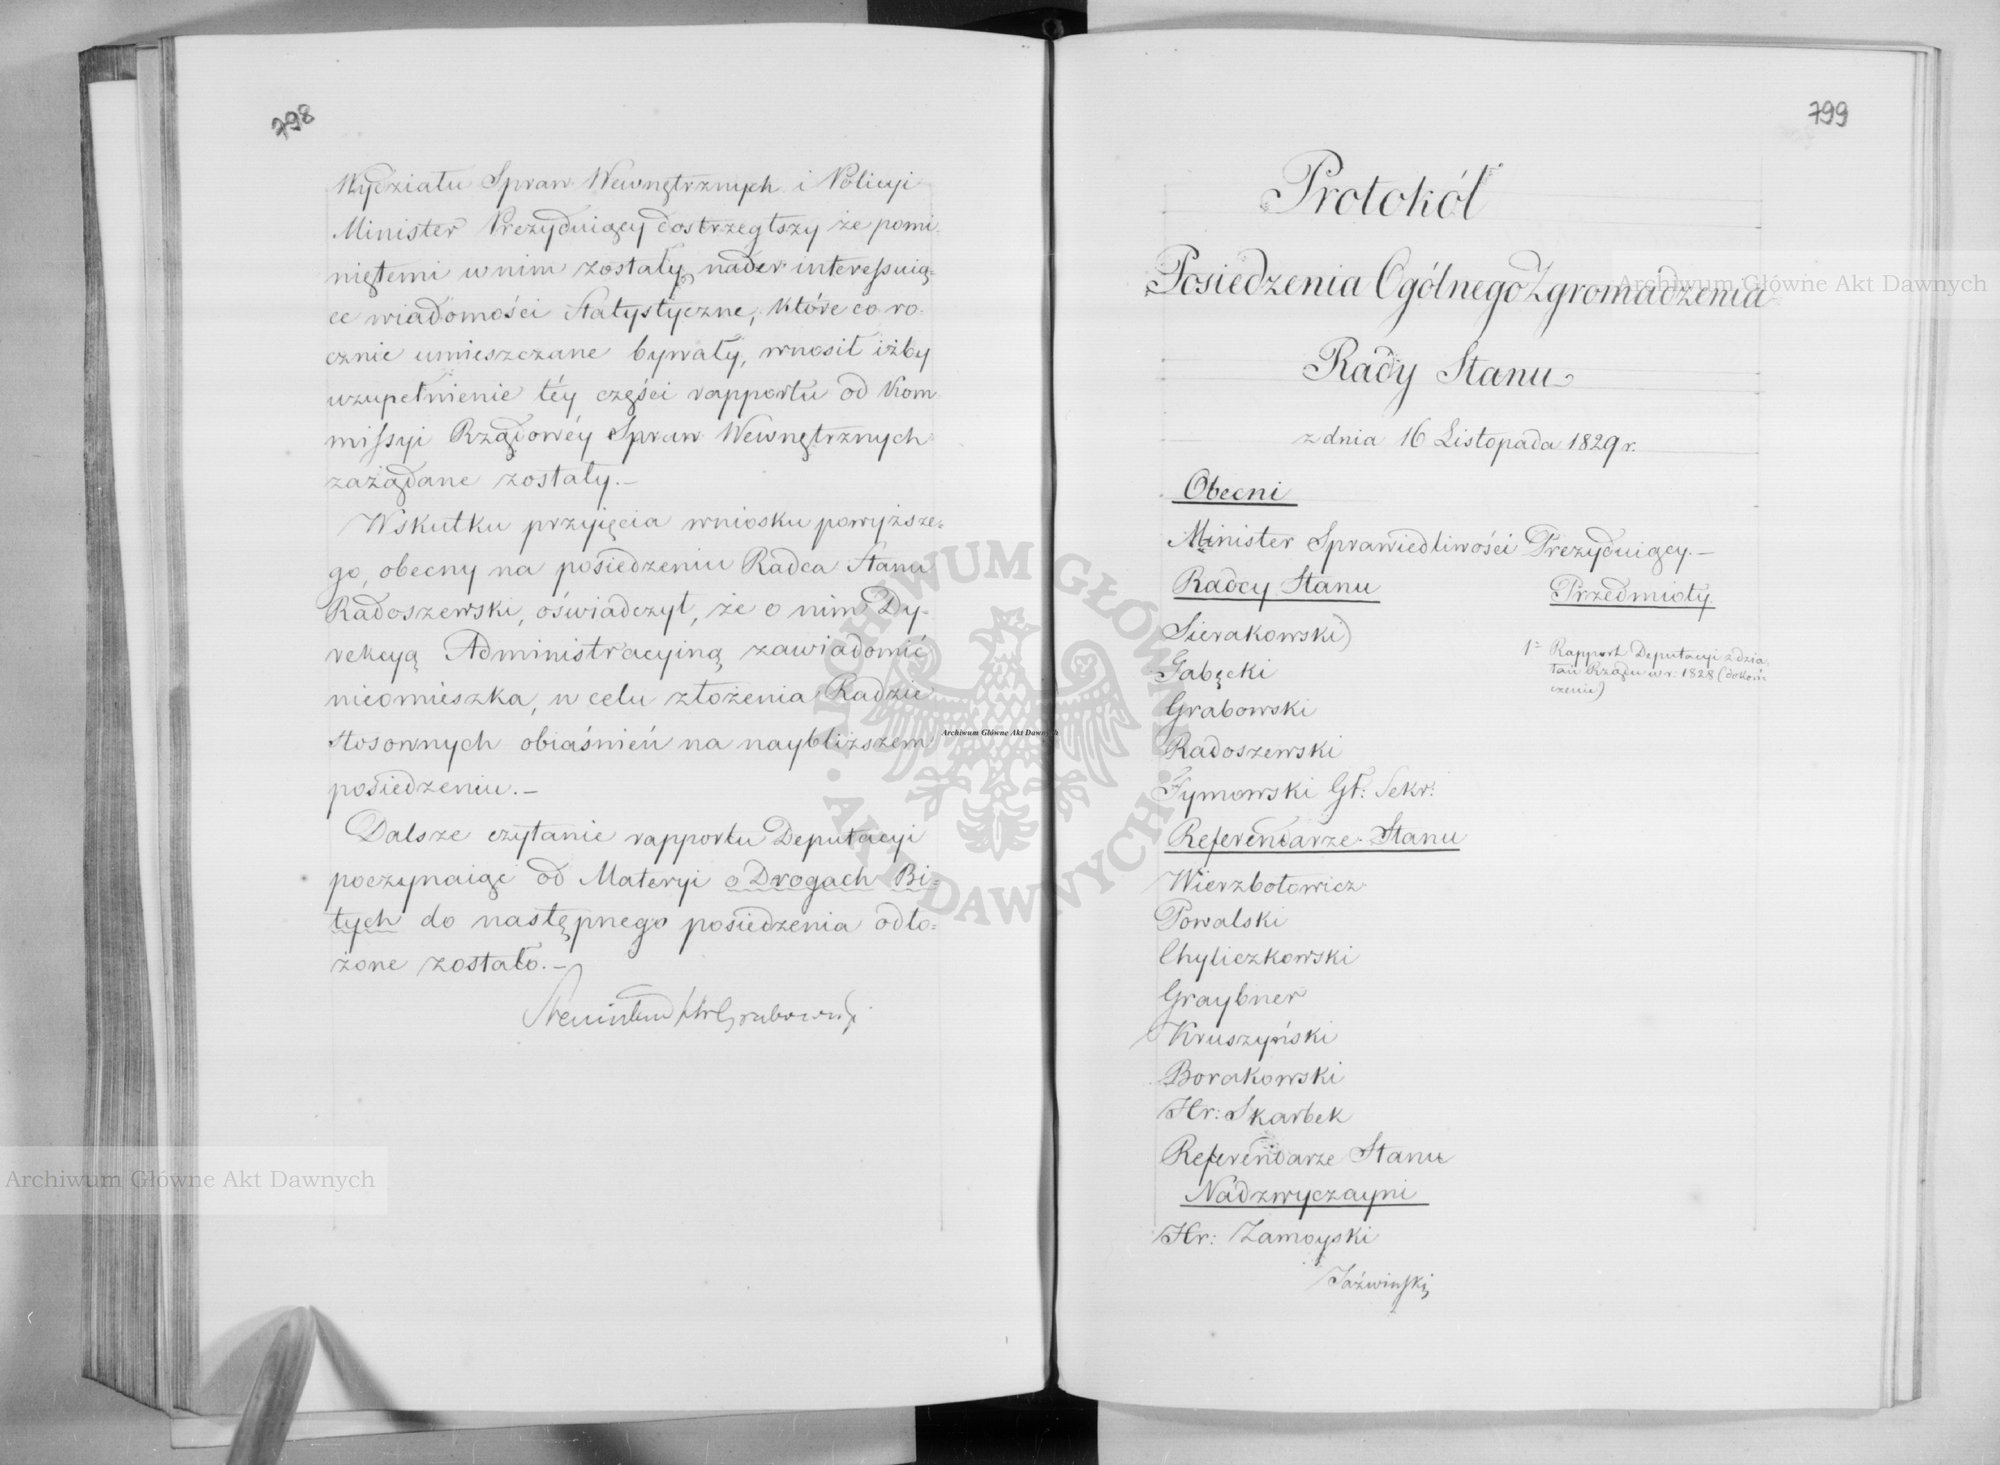 798
Wydziału Spraw Wewnętrznych i Policyi
Minister Prezyduiący dostrzegłszy że pomi-
niętemi w nim zostały, nader interessuią-
ce wiadomości Statystyczne, które co ro-
cznie umieszczane bywały, wnosił iżby
uzupełnienie téy części rapportu od Kom-
missyi Rządowéy Spraw Wewnętrznych
zażądane zostały.—
Wskutku przyięcia wniosku powyższe-
go, obecny na posiedzeniu Radca Stanu
Radoszewski, oświadczył, że o nim Dy-
rekcyą Administracyiną zawiadomić
nieomieszka, w celu złożenia Radzie
stosownych obiaśnień na naybliższem
posiedzeniu.—
Dalsze czytanie rapportu Deputacyi
poczynaiąc od Materyi o Drogach Bi-
tych do następnego posiedzenia odło-
żone zostało.—
Grabowski
799
Protokół
Posiedzenia Ogólnego Zgromadzenia
Rady Stanu
z dnia 16 Listopada 1829 r.
Obecni
Minister Sprawiedliwości Prezyduiący.—
Radcy Stanu
Przedmioty
Sierakowski
1= Rapport Deputacyi z dzia-
łań Rządu w r: 1828 (dokoń-
czenie)
Gabęcki
Grabowski
Radoszewski
Tymowski Gł: Sekr:
Referendarze Stanu
Wierzbołowicz
Powalski
Chyliczkowski
Graybner
Kruszyński
Borakowski
Hr: Skarbek
Referendarze Stanu
Nadzwyczayni
Hr: Zamoyski
Jaźwiński
Archiwum Główne Akt Dawnych
Archiwum Główne Akt Dawnych
Archiwum Główne Akt Dawnych
ARCHIWUM GŁÓWNE AKT DAWNYCH